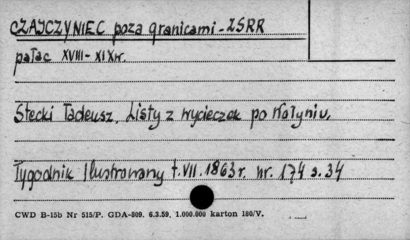 CZAJCZYNIEC poza granicami - ZSRR
pałac XVIII - XIXw.
Stecki Tadeusz. Listy z wycieczek po Wołyniu.
Tygodnik Ilustrowany t.VII.1863r. nr. 174 s.34
CWD B-15b Nr 515/P. GDA-809. 6.3.59. 1.000.000 karton 180/V.